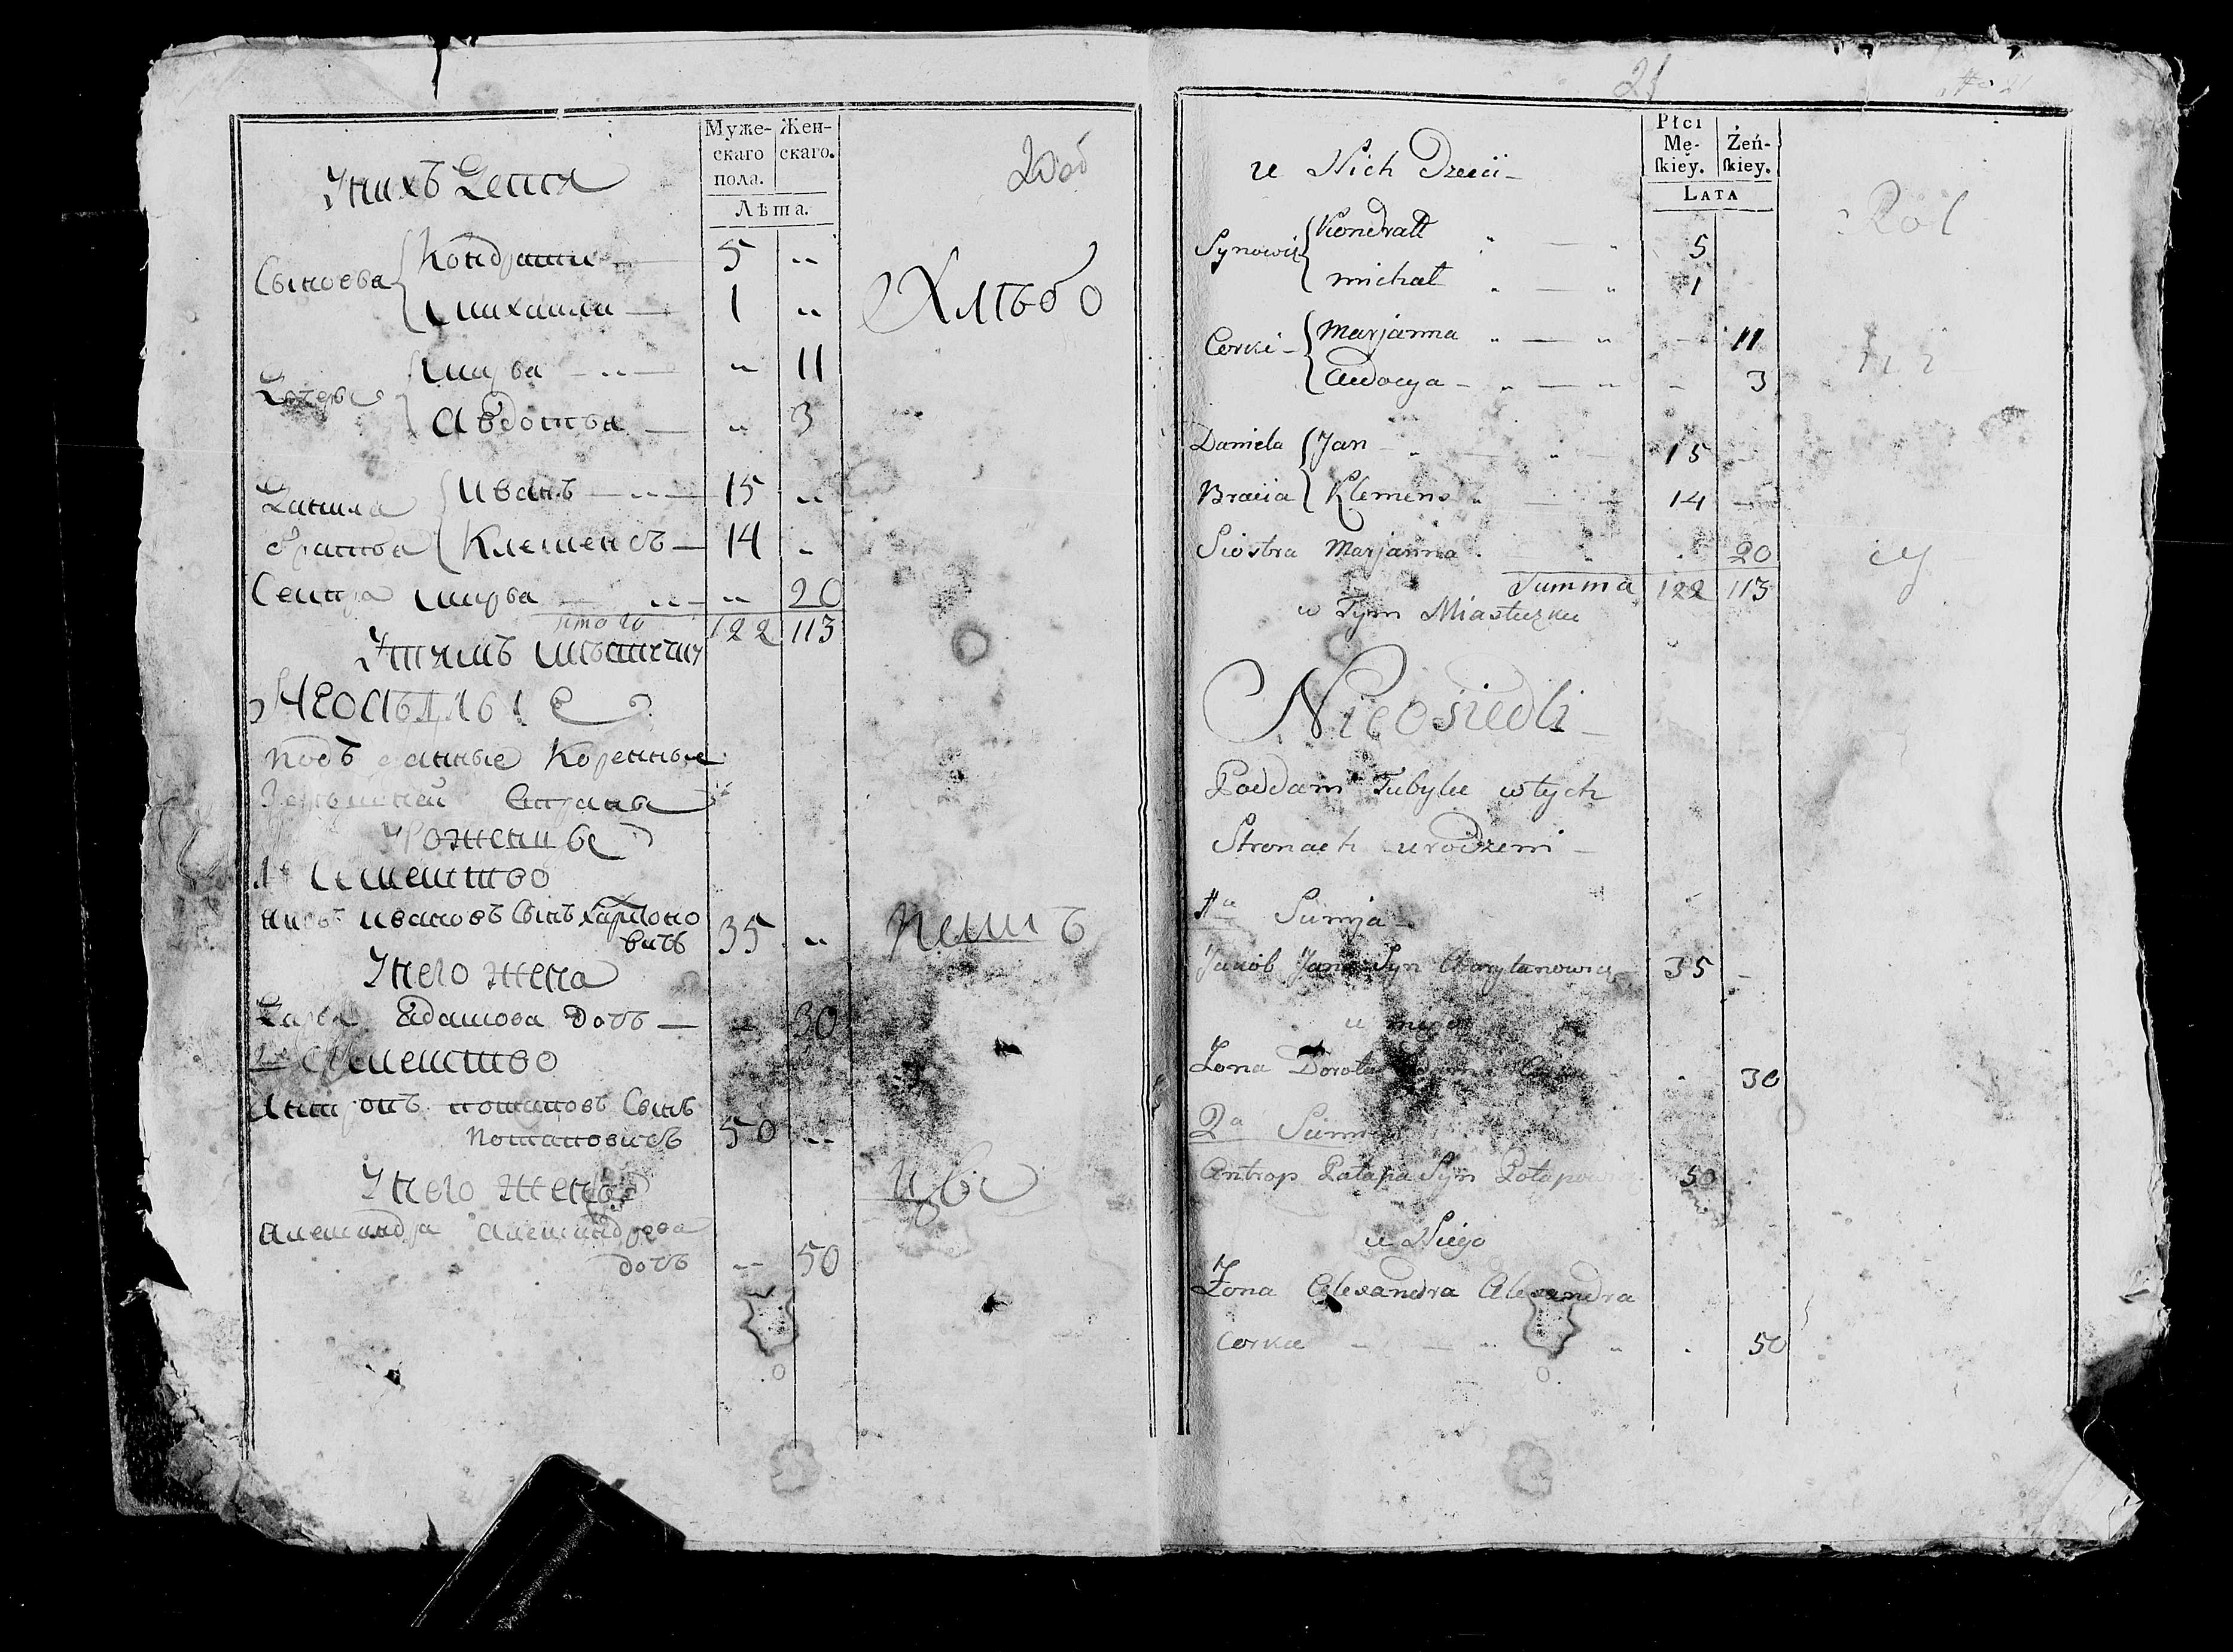 Муже-
скаго
пола.
Жен-
скаго.
Лѣта.
Унихъ Дети
Сыновья
Кондрати 5 „
Михаила 1 „
Дочери
Марья „ 11
Авдотья „ 3
Данила Братья
Иванъ 15 „
Клеменсъ 14 „
Сестра Марья „ 20
Итого 122 113
Хлѣбо
Утѣмъ мѣстѣчку
Неосѣдлые
Подъданные Коренные
Рожению
Семейство
Ивановъ Сынъ Харитоно
вичъ 35 „
пешъ
Унего жена
Дарья Адамова дочь „ 30
2е Семейство
Антропъ Потаповъ Сынъ
Потаповичъ 50 „
Унего жена
Александра Александрова
дочь „ 50
21
Płci
Mę-
ſkiey.
Żeń-
ſkiey.
LATA
u Nich Dzieci
Synowie
Kondratt 5
Michał 1
Corki
Marjanna 11
Awdocya 3
Daniela Bracia
Jan 15
Klemens 14
Siostra Marjanna 20
Summa 122 113
w Tym Miasteczku
Nieosiedli
Poddani Tubylce w tych
Stronach urodzeni
1a Familja
Jakób Jana Syn Charytanowicz 35
u niego
Żona Dorota 30
2a
Antrop Patapa Syn Potapowicz 50
u Niego
Żona Alexandra Alexandra
Corka 50